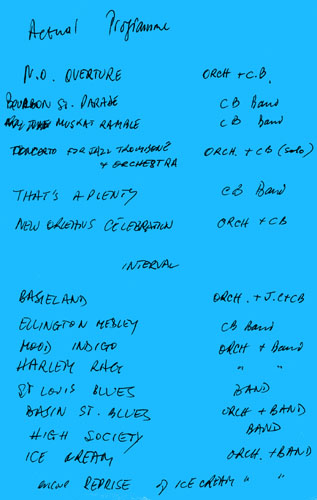 Actual Programme
N.O. OVERTURE ORCH + C.B.
BOURBON ST. PARADE CB Band
MUSKRAT RAMBLE CB Band
CONCERTO FOR JAZZ TROMBONE ORCH. + CB (solo)
+ ORCHESTRA
THAT'S A PLENTY CB Band
NEW ORLEANS CELEBRATION ORCH + CB
INTERVAL
BASIELAND ORCH. + J.C + CB
ELLINGTON MEDLEY CB Band
MOOD INDIGO ORCH + Band
HARLEM RAG " "
ST LOUIS BLUES BAND
BASIN ST. BLUES ORCH + BAND
HIGH SOCIETY BAND
ICE CREAM ORCH. + BAND
REPRISE of ICE CREAM " "